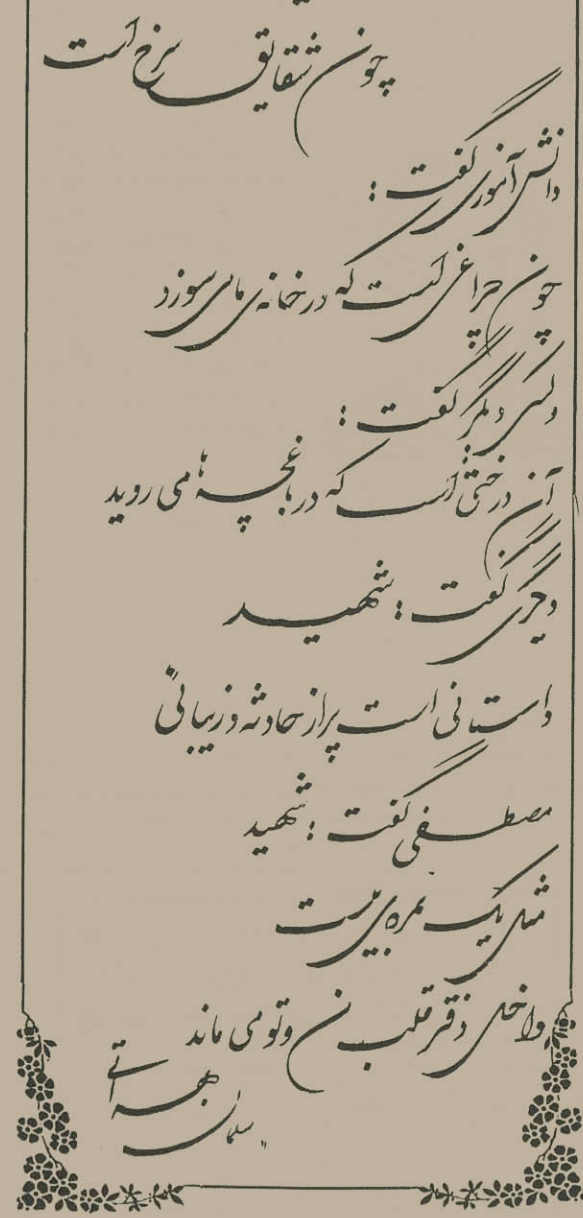 چون شقایق سرخ است
دانش آموزی گفت :
چون چراغی است که در خانه ی ما می سوزد
وکسی دیگر گفت :
آن درختی است که در باغچه ها می روید
دیگری گفت : شهید
داستانی است پر از حادثه و زیبائی
مصطفی گفت : شهید
مثل یک نمره ی بیست
داخل دفتر قلب من و تو می ماند
سلمان هراتی